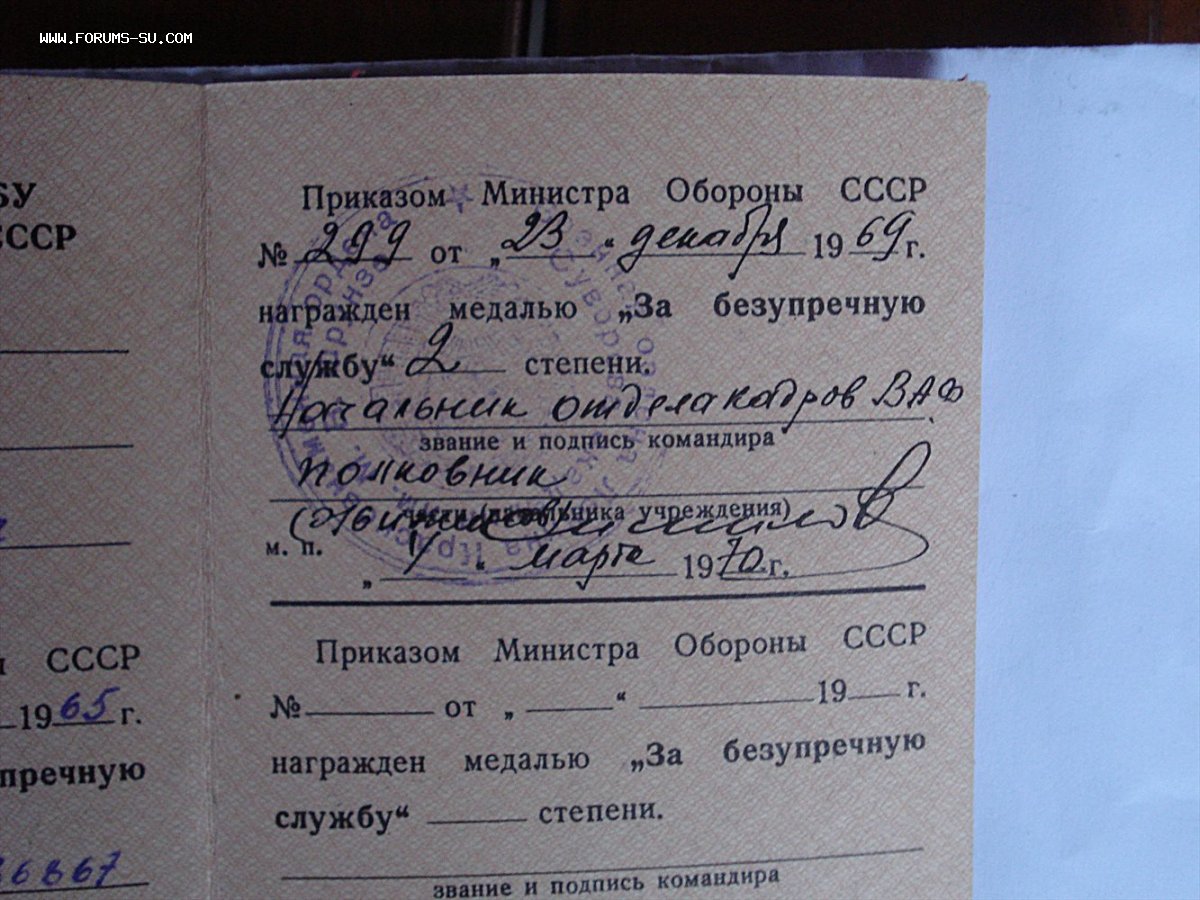 WWW.FORUMS-SU.COM
БУ
СССР
СССР
1965 г.
пречную
36867
Приказом Министра Обороны СССР
№ 299 от „23“ декабря 1969 г.
награжден медалью „За безупречную
службу“ 2 степени.
Начальник отдела кадров ВАФ
звание и подпись командира
полковник
части (начальника учреждения)
м. п.
„4“ марта 1970 г.
Приказом Министра Обороны СССР
№ от „ “ 19 г.
награжден медалью „За безупречную
службу“ степени.
звание и подпись командира